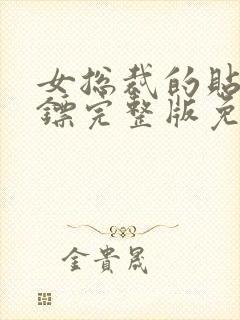 女总裁的貼
鏢完整版免
金貴晟